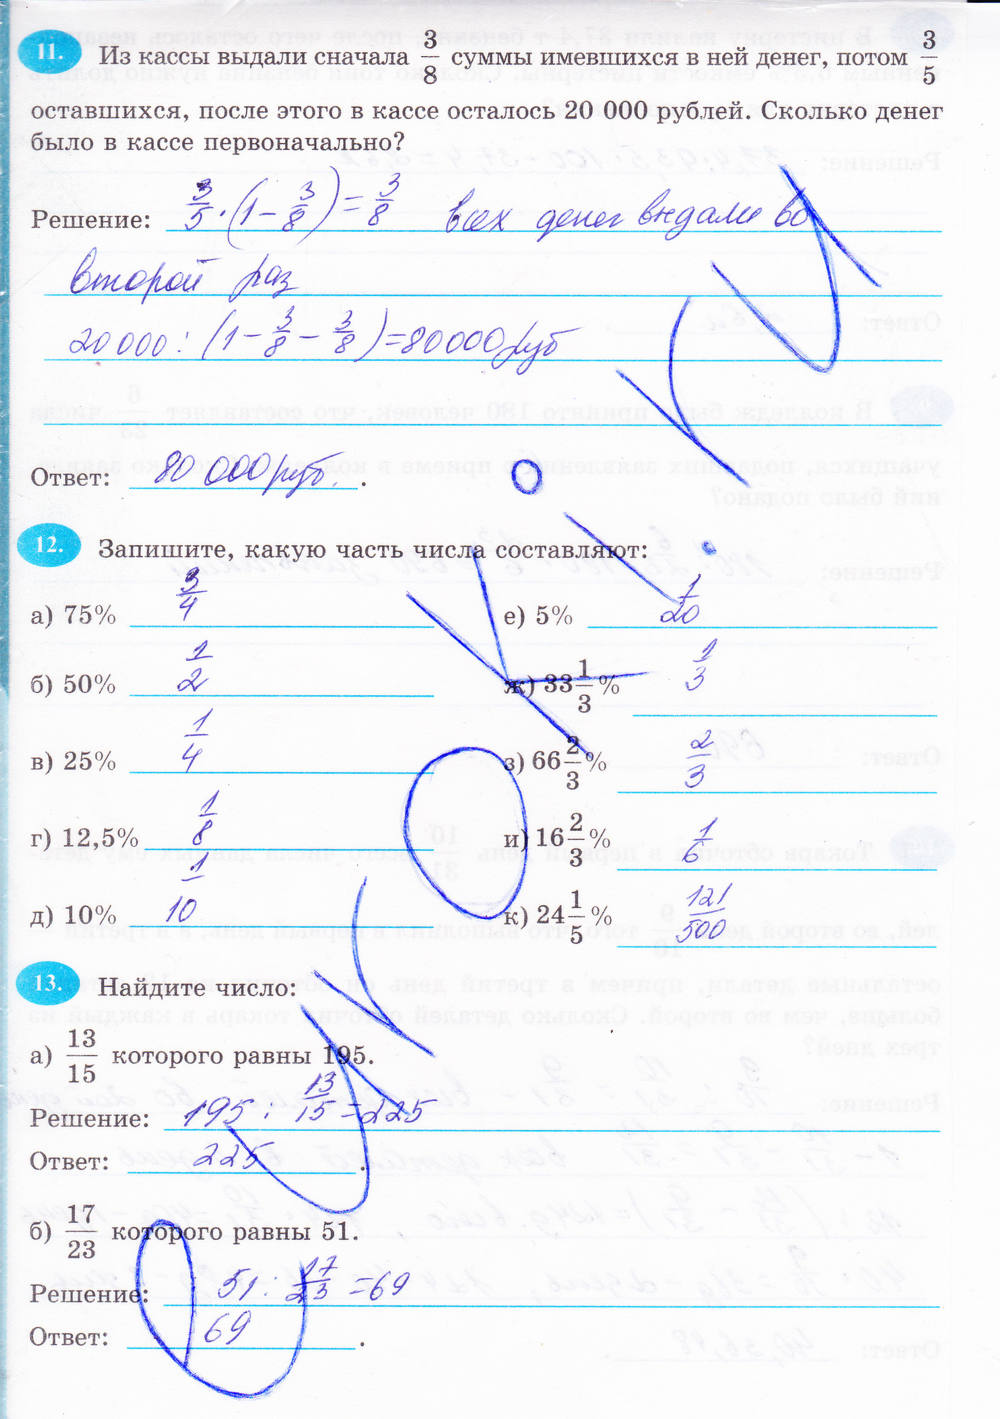 11. Из кассы выдали сначала 3/8 суммы имевшихся в ней денег, потом 3/5
оставшихся, после этого в кассе осталось 20 000 рублей. Сколько денег
было в кассе первоначально?
Решение: 3/5 · (1 - 3/8) = 3/8 всех денег выдали во
второй раз
20 000 : (1 - 3/8 - 3/8) = 80000 руб
Ответ: 80 000 руб. .
12. Запишите, какую часть числа составляют:
а) 75% 3/4
е) 5% 1/20
б) 50% 1/2
ж) 33 1/3 % 1/3
в) 25% 1/4
з) 66 2/3 % 2/3
г) 12,5% 1/8
и) 16 2/3 % 1/6
д) 10% 1/10
к) 24 1/5 % 121/500
13. Найдите число:
а) 13/15 которого равны 195.
Решение: 195 : 13/15 = 225
Ответ: 225 .
б) 17/23 которого равны 51.
Решение: 51 : 17/23 = 69
Ответ: 69 .